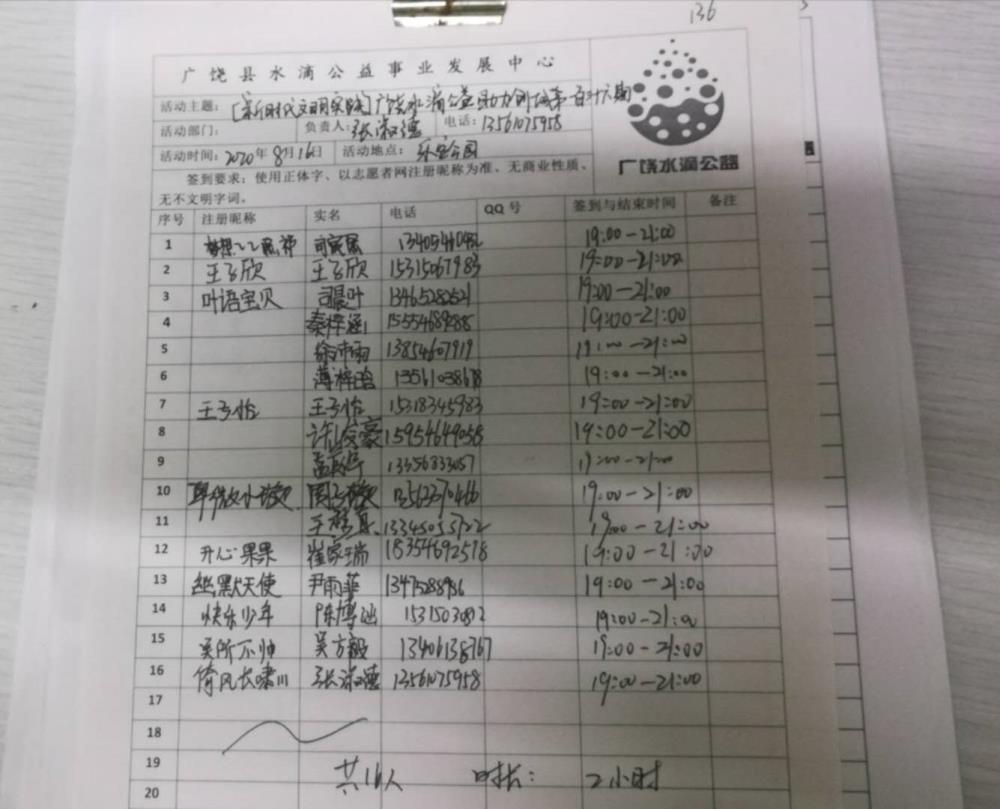 136
广饶县水滴公益事业发展中心
活动主题：[新时代文明实践]广饶水滴公益助力创城第一百三十六期
活动部门： 负责人：张淑德 电话：13561075958
活动时间：2020年8月16日 活动地点：乐安公园
广饶水滴公益
签到要求：使用正体字、以志愿者网注册昵称为准、无商业性质、
无不文明字词。
序号 注册昵称 实名 电话 QQ号 签到与结束时间 备注
1 19:00-21:00
2 王子欣 王子欣 15315067983 19:00-21:00
3 叶语宝贝 司晨叶 13465282521 19:00-21:00
4 秦梓涵 19:00-21:00
5 徐沛雨 13854607919 19:00-21:00
6 薄梓晗 19:00-21:00
7 王子怡 王子怡 15318345983 19:00-21:00
8 许俊豪 15954649058 19:00-21:00
9 13356833057 19:00-21:00
10 19:00-21:00
11 13345055722 19:00-21:00
12 开心果果 崔家瑞 18354692518 19:00-21:00
13 幽默天使 尹雨菲 19:00-21:00
14 快乐少年 陈博 19:00-21:00
15 吴所不帅 吴方毅 13406138767 19:00-21:00
16 倚风长啸川 张淑德 13561075958 19:00-21:00
17
18
19 共16人 时长： 2小时
20